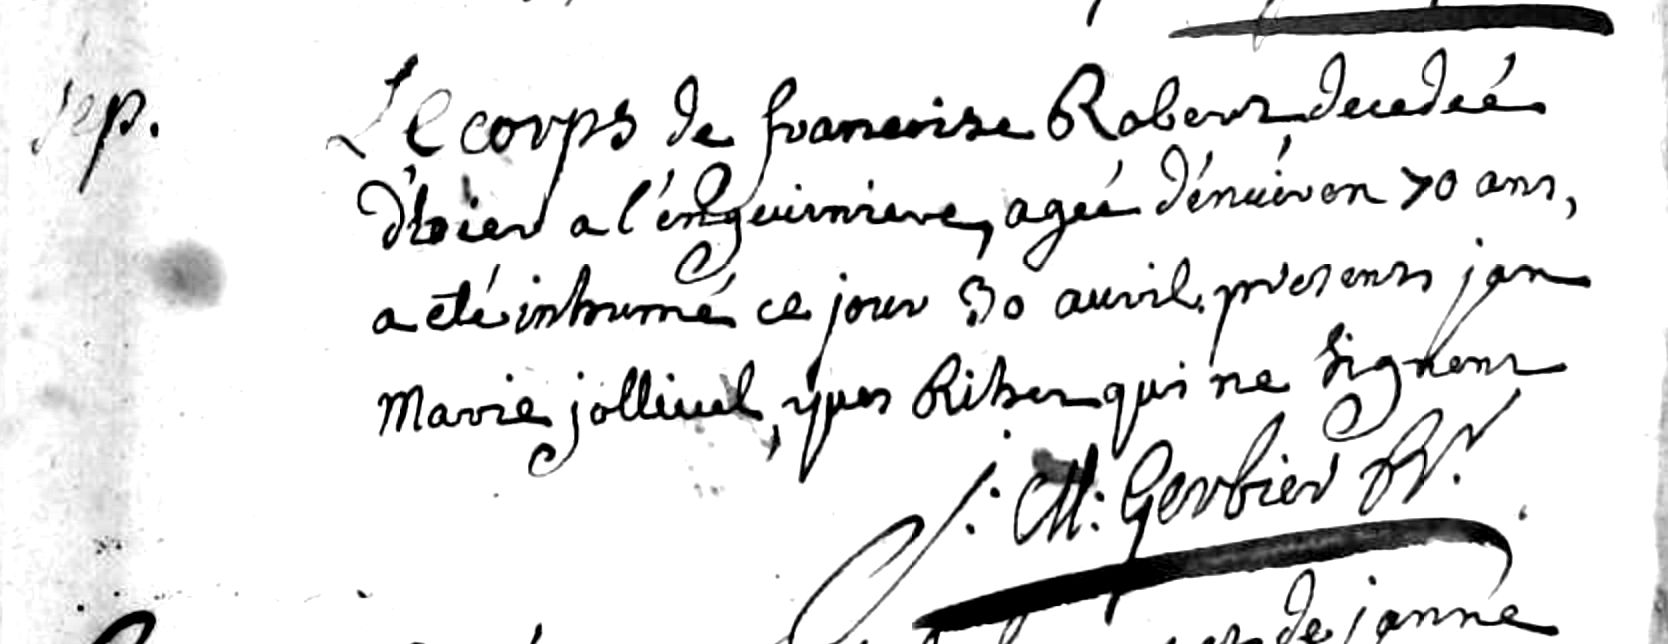 sep.
Le corps de francoise Robert decedeé
d'hier a l'enguirniere, ageé d'énuiron 70 ans,
a eté inhumé ce jour 30 auril. presents jan
Marie jolliuel, yues Riher qui ne signent
j: M: Gerbier
de janne